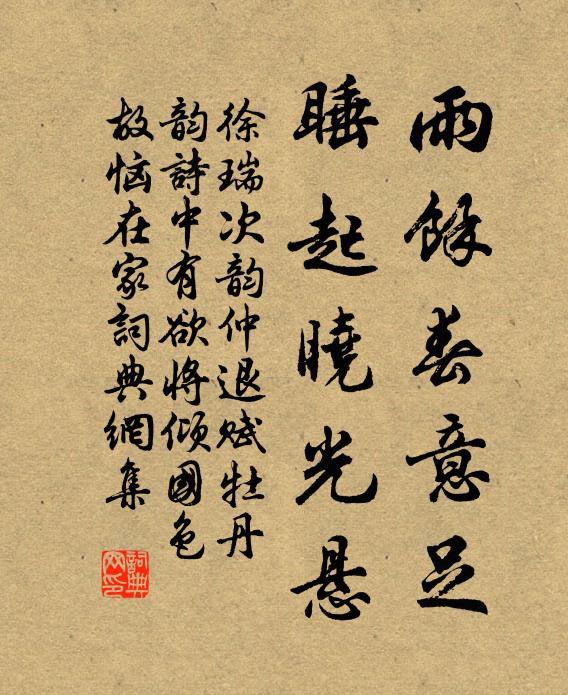 雨餘春意足
睡起曉光悬
徐瑞次韵仲退赋牡丹
韵詩中有欲將倾國色
故恼在家詞典網集
詞典网印